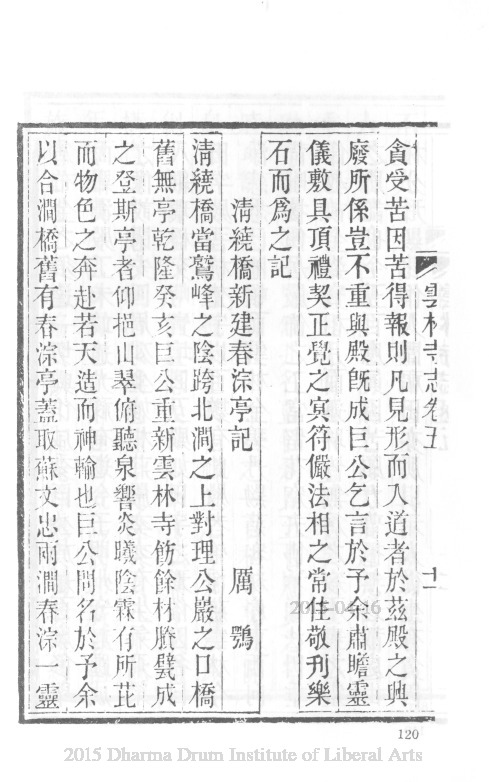 雲林寺志卷五
十一
貪受苦因苦得報則凡見形而入道者於茲殿之興
廢所係豈不重與殿旣成巨公乞言於予余肅瞻靈
儀敷具頂禮契正覺之冥符儼法相之常住敬刋樂
石而爲之記
清繞橋新建春淙亭記
厲鶚
清繞橋當鷲峰之陰跨北澗之上對理公巖之口橋
舊無亭乾隆癸亥巨公重新雲林寺飭餘材賸甓成
之登斯亭者仰挹山翠俯聽泉響炎曦陰霖有所芘
而物色之奔赴若天造而神輸也巨公問名於予余
以合澗橋舊有春淙亭蓋取蘇文忠兩澗春淙一靈
2015-04-16
120
2015 Dharma Drum Institute of Liberal Arts